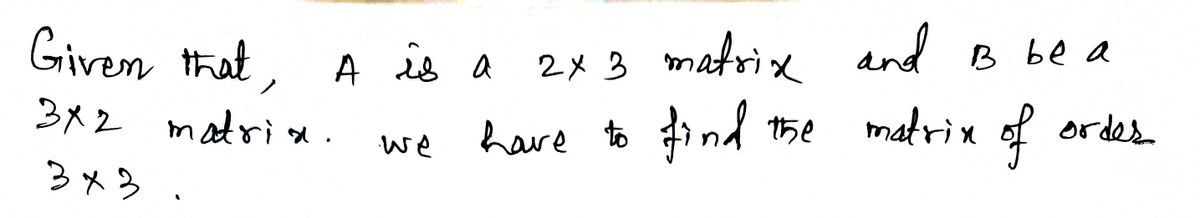 Given that, A is a 2×3 matrix and B be a
3×2 matrix. we have to find the matrix of order
3×3.